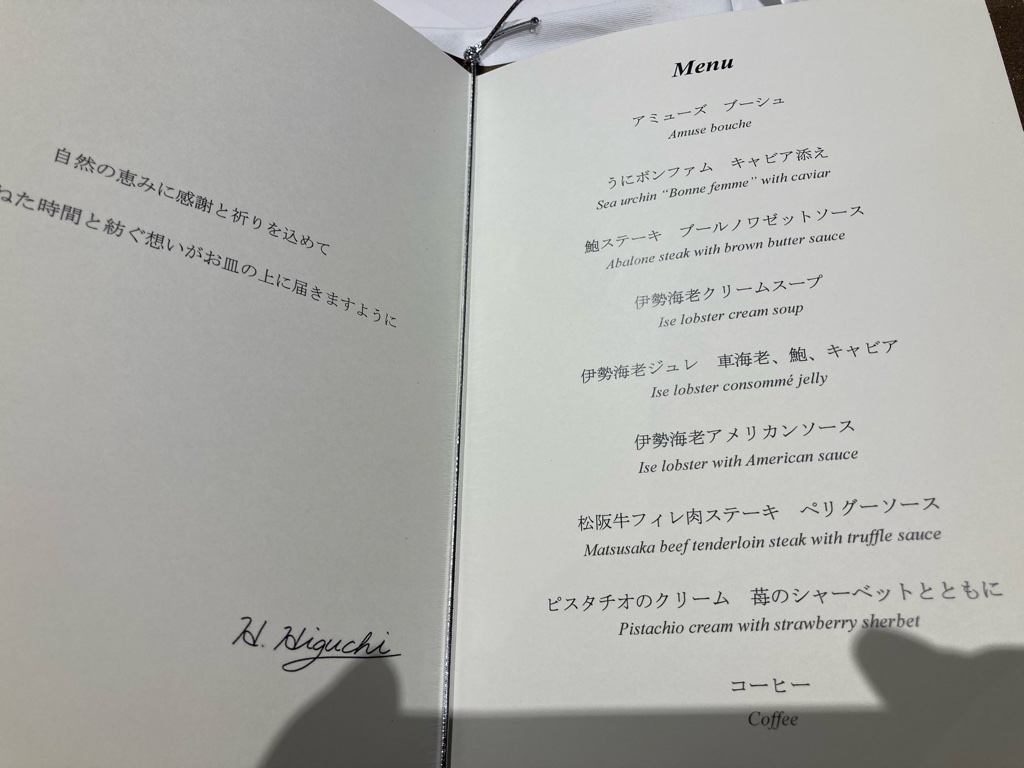 自然の恵みに感謝と祈りを込めて
ねた時間と紡ぐ想いがお皿の上に届きますように
H. Higuchi
Menu
アミューズ　ブーシュ
Amuse bouche
うにボンファム　キャビア添え
Sea urchin “Bonne femme” with caviar
鮑ステーキ　ブールノワゼットソース
Abalone steak with brown butter sauce
伊勢海老クリームスープ
Ise lobster cream soup
伊勢海老ジュレ　車海老、鮑、キャビア
Ise lobster consommé jelly
伊勢海老アメリカンソース
Ise lobster with American sauce
松阪牛フィレ肉ステーキ　ペリグーソース
Matsusaka beef tenderloin steak with truffle sauce
ピスタチオのクリーム　苺のシャーベットとともに
Pistachio cream with strawberry sherbet
コーヒー
Coffee